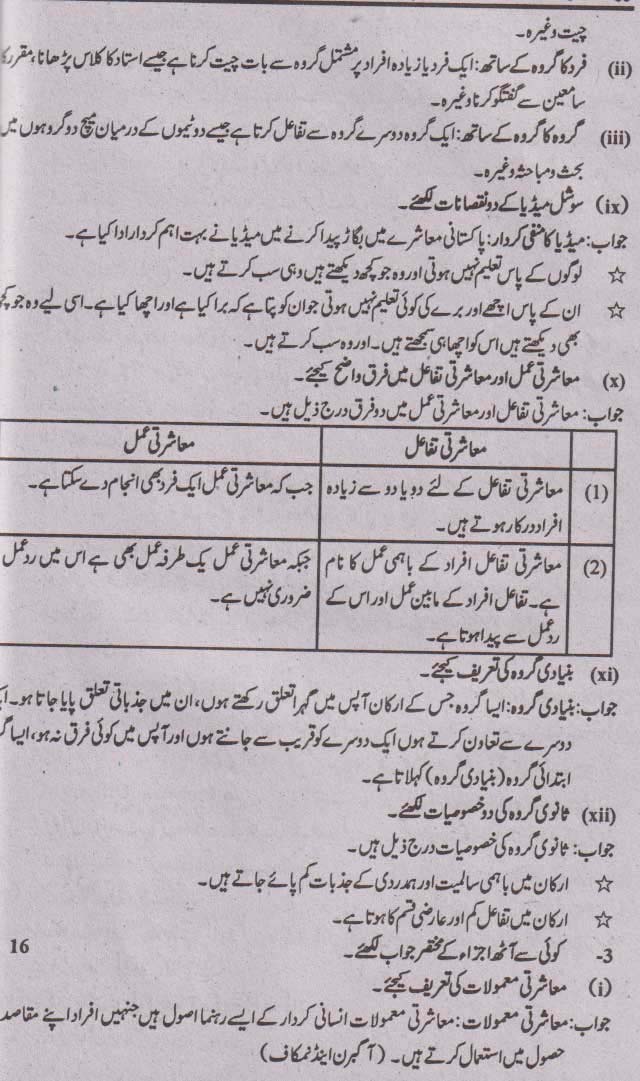 چیت وغیرہ۔
(ii) فرد کا گروہ کے ساتھ: ایک فرد یا زیادہ افراد پر مشتمل گروہ سے بات چیت کرنا ہے جیسے استاد کا کلاس پڑھانا، مقرر کا
سامعین سے گفتگو کرنا وغیرہ۔
(iii) گروہ کا گروہ کے ساتھ: ایک گروہ دوسرے گروہ سے تفاعل کرتا ہے جیسے دو ٹیموں کے درمیان میچ دو گروہوں میں
بحث و مباحثہ وغیرہ۔
(ix) سوشل میڈیا کے دو نقصانات لکھئے۔
جواب: میڈیا کا منفی کردار: پاکستانی معاشرے میں بگاڑ پیدا کرنے میں میڈیا نے بہت اہم کردار ادا کیا ہے۔
☆ لوگوں کے پاس تعلیم نہیں ہوتی اور وہ جو کچھ دیکھتے ہیں وہی سب کرتے ہیں۔
☆ ان کے پاس اچھے اور برے کی کوئی تعلیم نہیں ہوتی جو ان کو پتا ہے کہ برا کیا ہے اور اچھا کیا ہے۔ اسی لیے وہ جو کچھ
بھی دیکھتے ہیں اس کو اچھا ہی سمجھتے ہیں۔ اور وہ سب کرتے ہیں۔
(x) معاشرتی عمل اور معاشرتی تفاعل میں فرق واضح کیجئے۔
جواب: معاشرتی تفاعل اور معاشرتی عمل میں دو فرق درج ذیل ہیں۔
معاشرتی تفاعل معاشرتی عمل
(1) معاشرتی تفاعل کے لئے دو یا دو سے زیادہ جب کہ معاشرتی عمل ایک فرد بھی انجام دے سکتا ہے۔
افراد درکار ہوتے ہیں۔
(2) معاشرتی تفاعل افراد کے باہمی عمل کا نام جبکہ معاشرتی عمل یک طرفہ عمل بھی ہے اس میں رد عمل
ہے۔ تفاعل افراد کے مابین عمل اور اس کے ضروری نہیں ہے۔
رد عمل سے پیدا ہوتا ہے۔
(xi) بنیادی گروہ کی تعریف کیجئے۔
جواب: بنیادی گروہ: ایسا گروہ جس کے ارکان آپس میں گہرا تعلق رکھتے ہوں، ان میں جذباتی تعلق پایا جاتا ہو۔
دوسرے سے تعاون کرتے ہوں ایک دوسرے کو قریب سے جانتے ہوں اور آپس میں کوئی فرق نہ ہو، ایسا
ابتدائی گروہ (بنیادی گروہ) کہلاتا ہے۔
(xii) ثانوی گروہ کی دو خصوصیات لکھئے۔
جواب: ثانوی گروہ کی خصوصیات درج ذیل ہیں۔
☆ ارکان میں باہمی سالمیت اور ہمدردی کے جذبات کم پائے جاتے ہیں۔
☆ ارکان میں تفاعل کم اور عارضی قسم کا ہوتا ہے۔
3- کوئی سے آٹھ اجزاء کے مختصر جواب لکھئے۔ 16
(i) معاشرتی معمولات کی تعریف کیجئے۔
جواب: معاشرتی معمولات: معاشرتی معمولات انسانی کردار کے ایسے رہنما اصول ہیں جنہیں افراد اپنے مقاصد
حصول میں استعمال کرتے ہیں۔ (آگبرن اینڈ نمکاف)